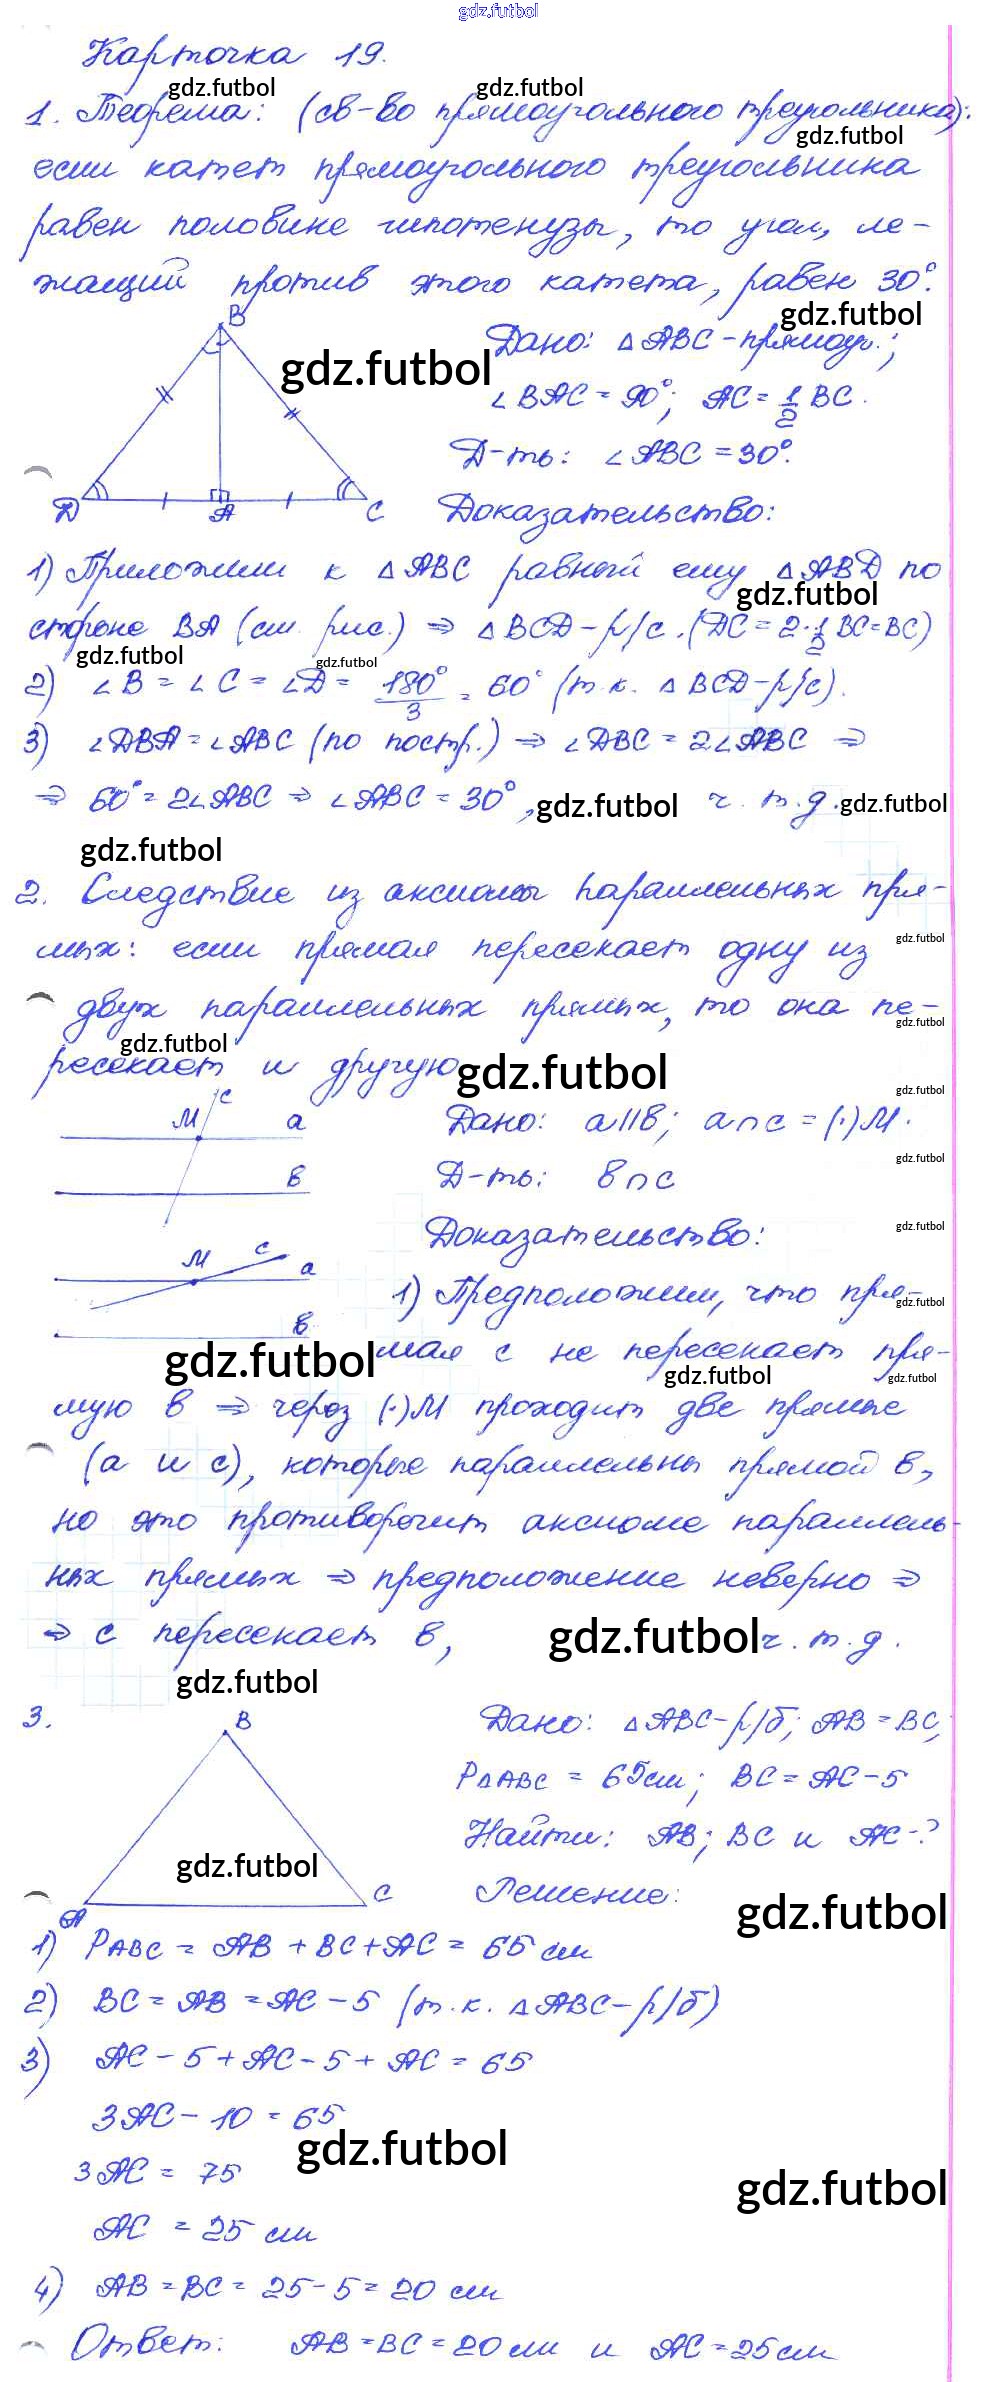 gdz.futbol
Карточка 19.
gdz.futbol gdz.futbol
1. Теорема: (св-во прямоугольного треугольника):
gdz.futbol
если катет прямоугольного треугольника
равен половине гипотенузы, то угол, ле-
жащий против этого катета, равен 30°.
gdz.futbol
B
Дано: △ABC - прямоуг.;
gdz.futbol
∠BAC = 90°; AC = 1/2 BC.
Д-ть: ∠ABC = 30°.
D A C
Доказательство:
1) Приложим к △ABC равный ему △ABD по
gdz.futbol
стороне BA (см. рис.) ⇒ △BCD - р/с. (DC = 2·1/2 BC = BC)
gdz.futbol gdz.futbol
2) ∠B = ∠C = ∠D = 180°/3 = 60° (т.к. △BCD - р/с).
3) ∠DBA = ∠ABC (по постр.) ⇒ ∠DBC = 2∠ABC ⇒
⇒ 60° = 2∠ABC ⇒ ∠ABC = 30°, gdz.futbol ч.т.д. gdz.futbol
gdz.futbol
2. Следствие из аксиомы параллельных пря-
мых: если прямая пересекает одну из gdz.futbol
двух параллельных прямых, то она пе-
gdz.futbol
gdz.futbol
ресекает и другую. gdz.futbol
gdz.futbol
M c a
Дано: a∥b; a∩c = (·)M.
gdz.futbol
b
Д-ть: b∩c
gdz.futbol
Доказательство:
M c a
1) Предположим, что пря-
gdz.futbol
b
gdz.futbol мая c не пересекает пря-
gdz.futbol gdz.futbol
мую b ⇒ через (·)M проходит две прямые
(a и c), которые параллельны прямой b,
но это противоречит аксиоме параллель-
ных прямых ⇒ предположение неверно ⇒
⇒ c пересекает b, gdz.futbol ч.т.д.
gdz.futbol
3.
B
Дано: △ABC - р/б; AB = BC;
P△ABC = 65 см; BC = AC - 5
Найти: AB; BC и AC - ?
gdz.futbol
A C
Решение:
gdz.futbol
1) PABC = AB + BC + AC = 65 см
2) BC = AB = AC - 5 (т.к. △ABC - р/б)
3) AC - 5 + AC - 5 + AC = 65
3AC - 10 = 65
gdz.futbol
3AC = 75
gdz.futbol
AC = 25 см
4) AB = BC = 25 - 5 = 20 см
Ответ: AB = BC = 20 см и AC = 25 см